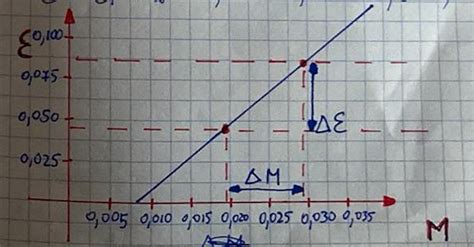 ε 0,100
0,075
0,050
Δε
0,025
ΔM
0,005 0,010 0,015 0,020 0,025 0,030 0,035
M